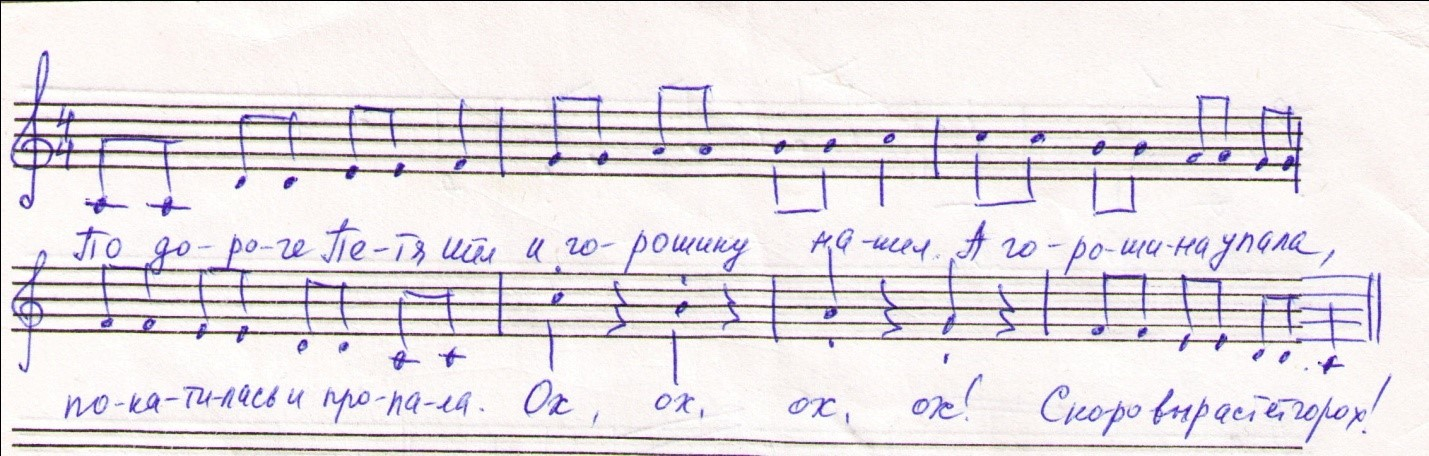 4
4
По до-ро-ге Пе-тя шёл и го-рошину на-шел. А го-ро-ши-на упала,
по-ка-ти-лась и про-па-ла. Ох, ох, ох, ох! Скоро вырастет горох!